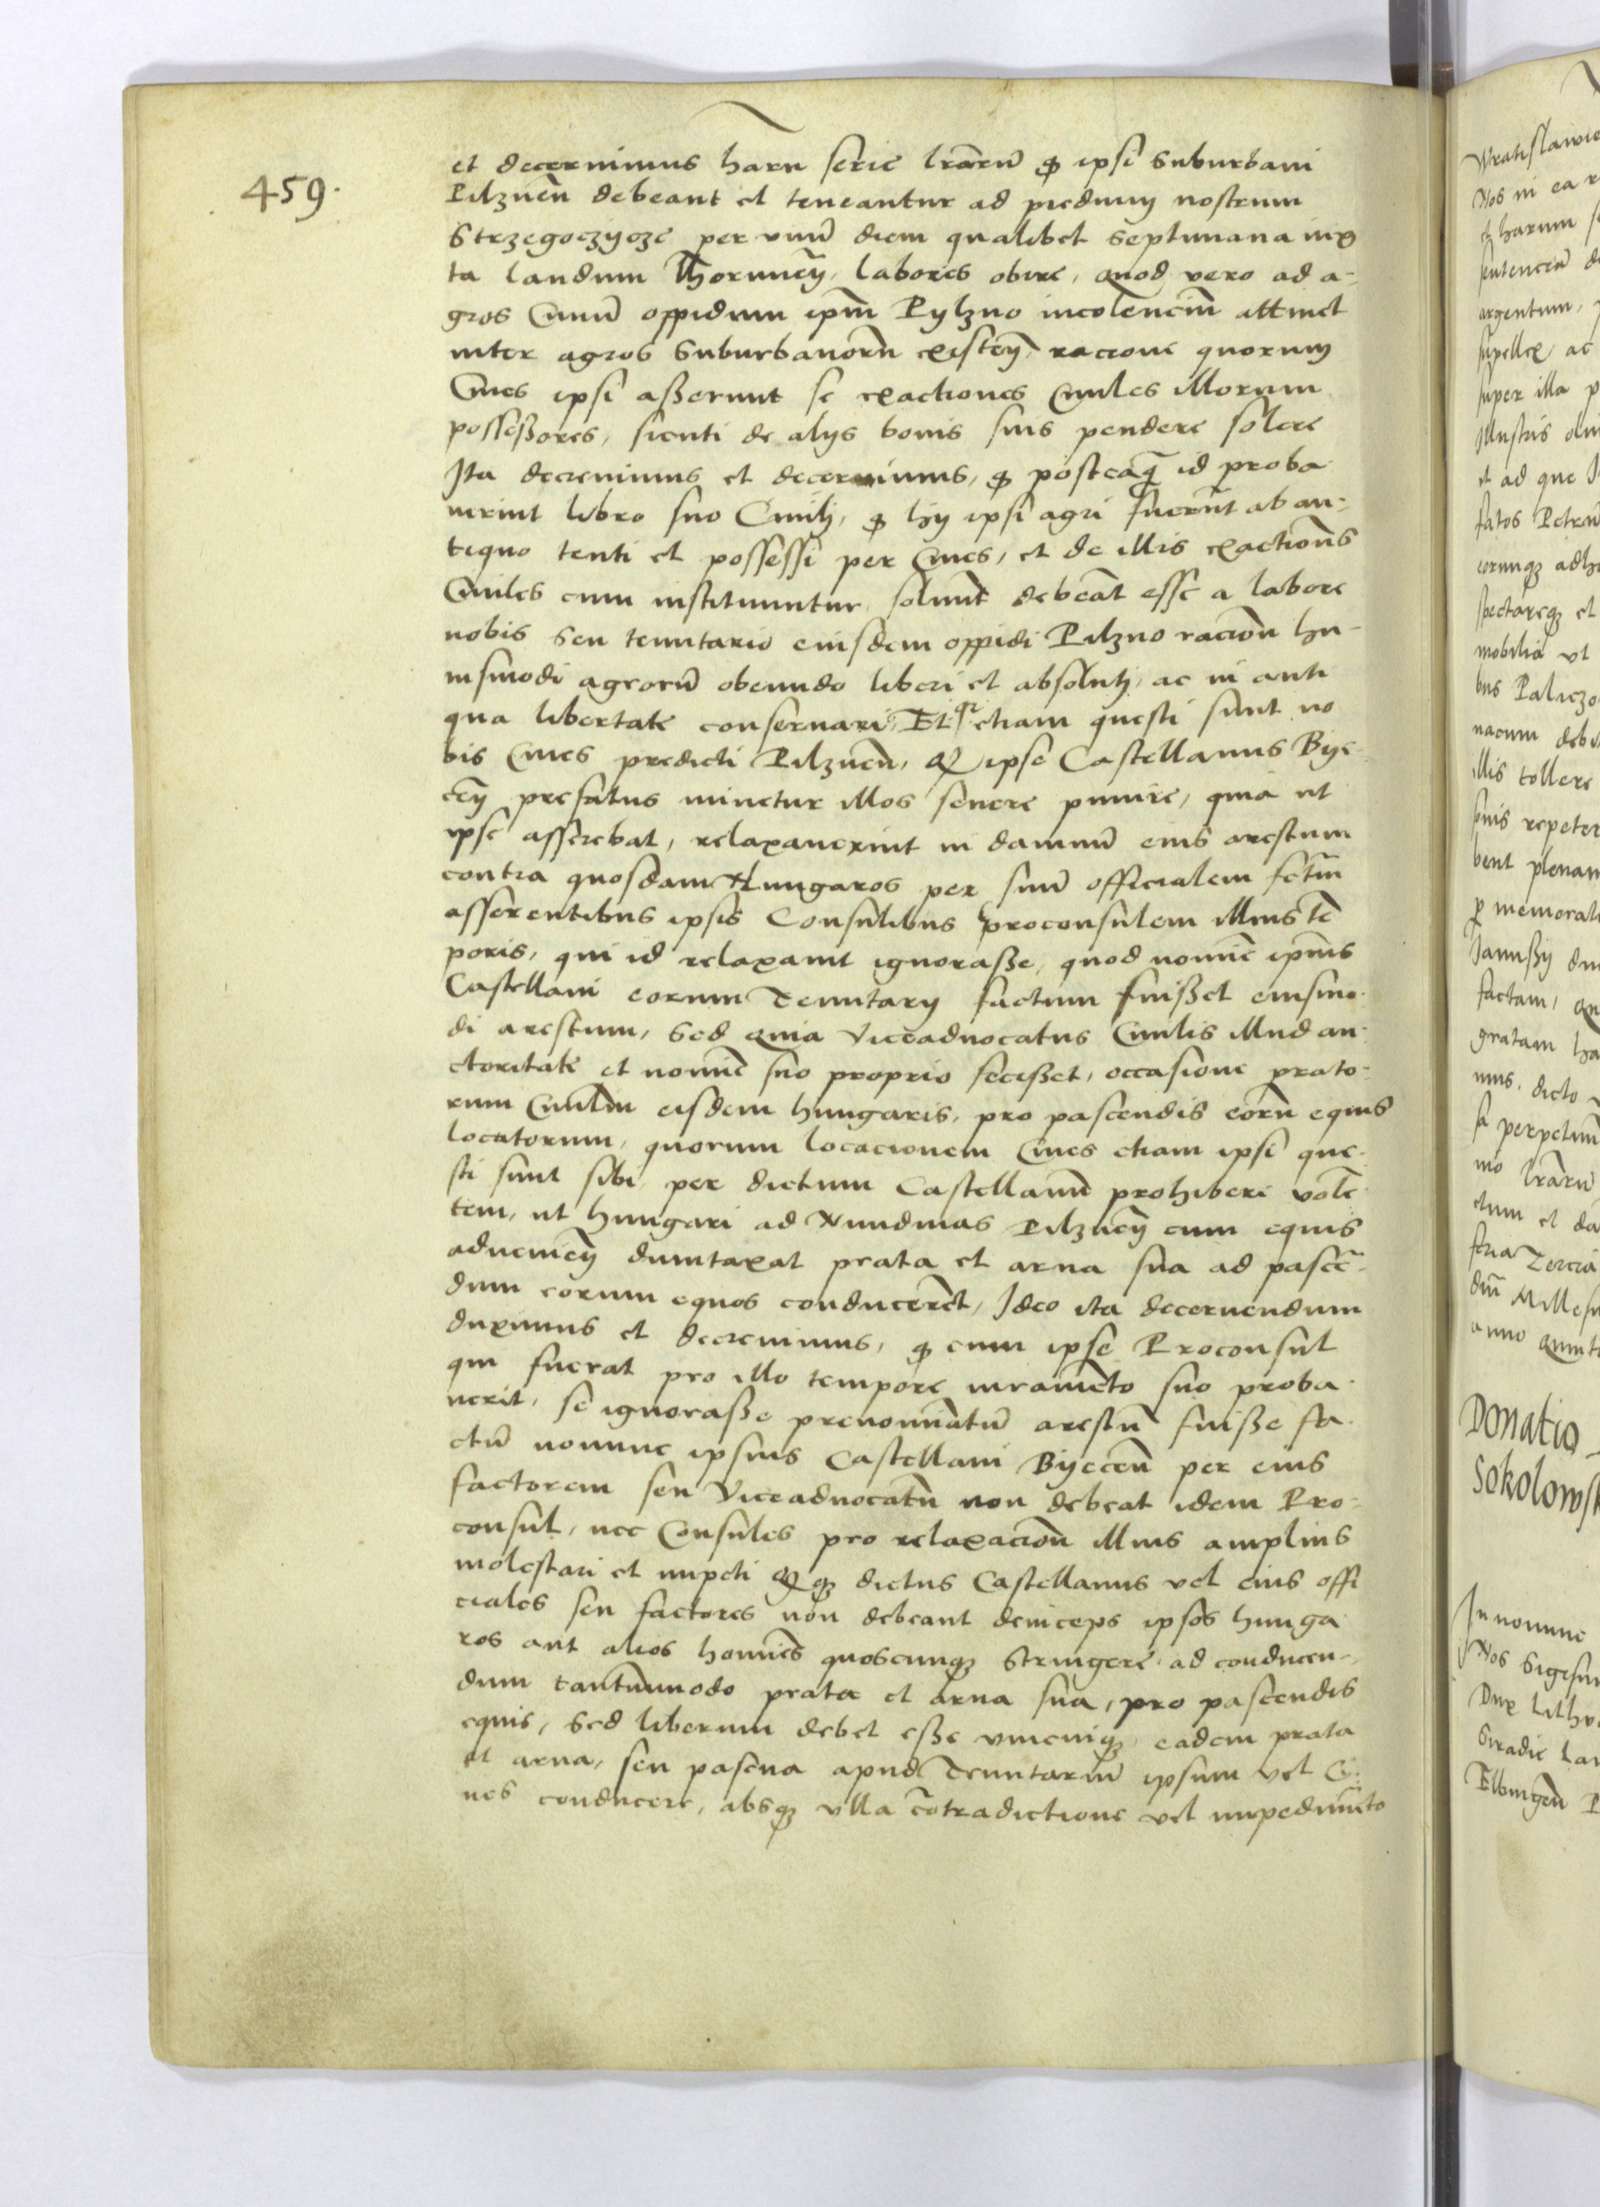 459.
et decernimus haru serie lrarũ ꝙ ipsi suburbani
Pilznen̄ debeant et teneantur ad prediuȷ nostrum
Strzegoczycze per vnũ diem qualibet septimana iux
ta landum Thorunen̄, labores obire, quod vero ad a-
gros Ciuiũ oppidum ipm̄ Pylzno incolenciũ attinet
inter agros suburbanorũ existen̄, racione quorum
Ciues ipsi asserunt se exactiones Ciuiles illorum
possessores, sicuti de alijs bonis suis pendere solere
Ita decreuimus et decernimus, ꝙ posteaq̃ id proba
uerint libro suo Ciuilj, ꝙ hij ipsi agri fuerĩt ab an-
tiquo tenti et possessi per Ciues, et de illis exactiones
Ciuiles cum instituuntur soluunt debeãt esse a labore
nobis seu tenutario eiusdem oppidi Pilzno racion̄ hu-
iusmodi agrorũ obeundo liberi et absolutj, ac in anti
qua libertate conseruari, Et qr etiam questi sunt no
bis Ciues predicti Pilznen̄, Qꝙ ipse Castellanus Bije
cen̄ prefatus minetur illos seuere punire, quia ut
ipse asserebat, relaxauerint in damnũ eius arestum
contra quosdam Hungaros per suũ officialem fctm̄
asserentibus ipsis Consulibus proconsulem illius tẽ
poris, qui id relaxauit ignorasse, quod nomĩe ipĩus
Castellani eorum Tenutarij factum fuisset eiusmo-
di arestum, sed quia viceaduocatus Ciuilis illud au-
ctoritate et nomĩe suo proprio fecisset, occasione prato-
rum Ciuiliũ eisdem hungaris, pro pascendis eorũ equis
locatorum, quorum locacionem Ciues etiam ipsi que-
sti sunt sibi per dictum Castellanũ prohiberi volẽ
tem, ut hungari ad Nundinas Pilznen̄ cum equis
aduenien̄ dumtaxat prata et arua sua ad pascẽ-
dum eorum equos conducerẽt, Ideo ita decernendum
duximus et decreuimus, ꝙ cum ipse Proconsul
qui fuerat pro illo tempore iuramẽto suo proba-
uerit, se ignorasse prenomĩatũ arestũ fuisse fa-
ctũ nomine ipsius Castellani Bijecen̄ per eius
factorem seu Viceaduocatũ non debeat idem Pro-
consul, nec Consules pro relaxacion̄ illius amplius
molestari et impeti Qꝙqꝫ dictus Castellanus vel eius offi
ciales seu factores non debeant deinceps ipsos hunga
ros aut alios homĩes quoscunqꝫ stringere ad conducen-
dum tantummodo prata et arua sua, pro pascendis
equis, sed liberum debet esse vnicuiqꝫ eadem prata
et arua, seu pascua apud Tenutariũ ipsum vel Ci-
ues conducere, absqꝫ vlla cõtradictione vel impedimẽto
Nos in ea r
et harum s
sentenciã d
argentum,
supellex ac
super illa p
Illustris oli
et ad que
fatos Petrũ
eorumqꝫ adh
spectareqꝫ et
mobilia vt
bus Paliczo
illis tollere
suis repeter
bent plenam
factam,
gratam ha
mus. dicto
sa perpetuũ
lrarũ
ctum et da
feria Tercia
dm̄ Millesi
anno quinto
Donatio
Sokolowsk
In nomine
Nos Sigism
Dux Lithu
Siradie Lan
Elbingen̄ P